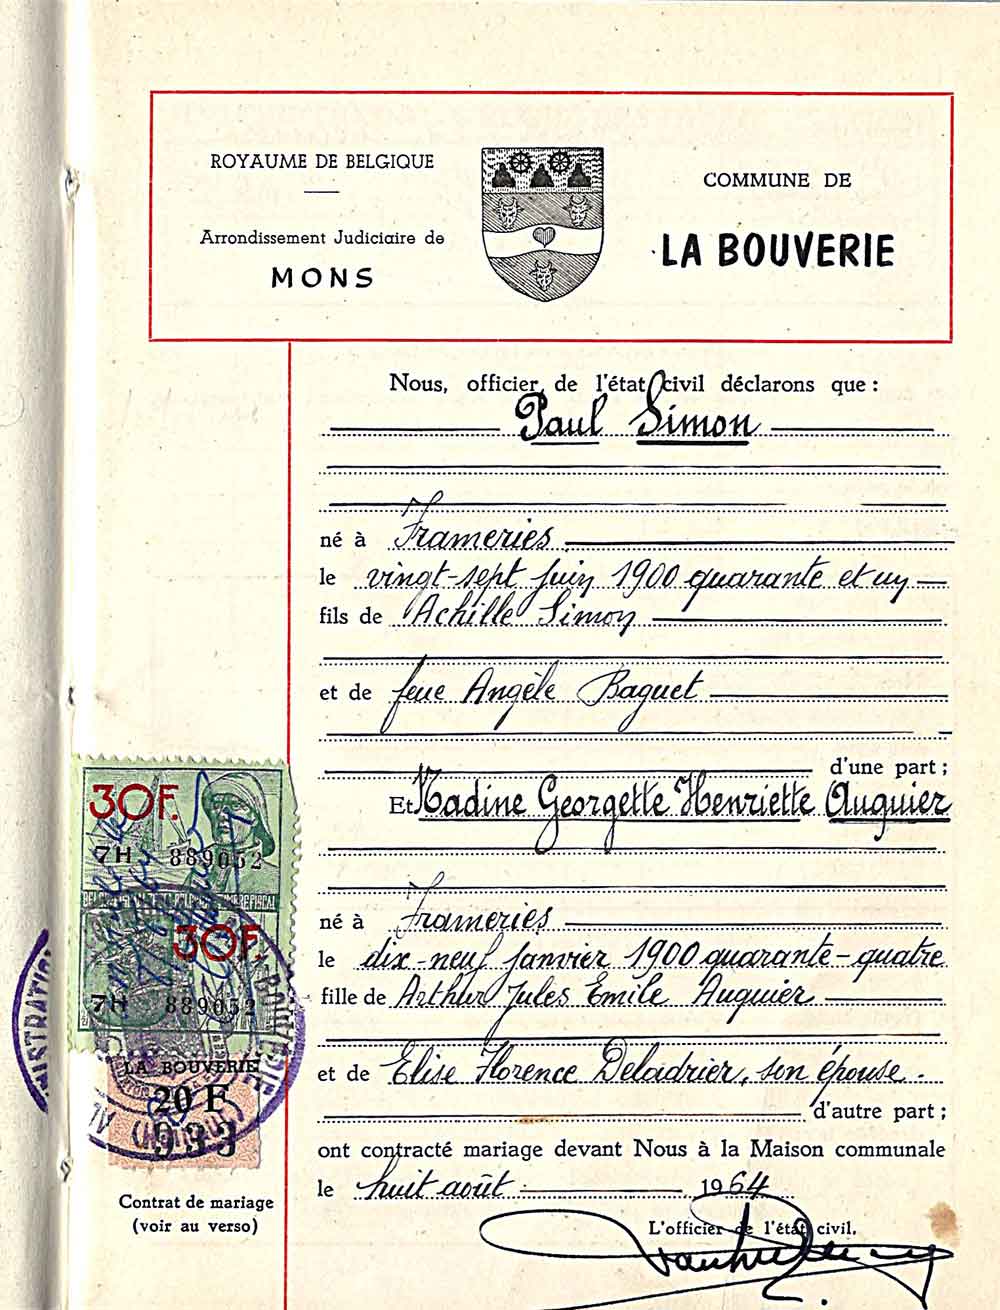 ROYAUME DE BELGIQUE
Arrondissement Judiciaire de
MONS
COMMUNE DE
LA BOUVERIE
Nous, officier de l'état civil déclarons que :
Paul Simon
né à Frameries
le vingt-sept juin 1900 quarante et un
fils de Achille Simon
et de feue Angèle Baguet
d'une part ;
Et Nadine Georgette Henriette Auquier
né à Frameries
le dix-neuf janvier 1900 quarante-quatre
fille de Arthur Jules Emile Auquier
et de Elise Florence Deladrier, son épouse.
d'autre part ;
ont contracté mariage devant Nous à la Maison communale
le huit août 1964
L'officier de l'état civil.
30F.
7H 889052
30F.
7H 889052
LA BOUVERIE
20 F
933
Contrat de mariage
(voir au verso)